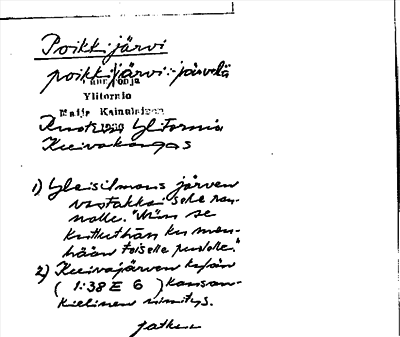 Poikkijärvi
poikki|järvi: -järvelä
Ylitornio
Maija Kainulainen
Ruotsin Ylitornio
Kuivakangas
1) Yleisilmaus järven
vastakkaiselle ran-
nalle. "Niin se
kutkethän ku men-
hään toiselle puolele."
2) Kuivajärven
(1:38 E 6) kansan-
kielinen nimitys.
jatkuu